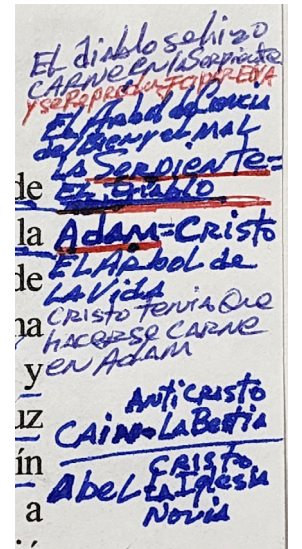 El diablo se hizo
CARNE en la Serpiente
y se Reprodujo por EVA
El Arbol de Ciencia
del Bien y el MAL
La Serpiente=
de EL Diablo
la Adam=Cristo
de El Arbol de
La Vida
na Cristo tenia Que
hacerse CARNE
y en Adam
Anticristo
uz CAin=La Bestia
ín Cristo
Abel La Iglesia
a Novia